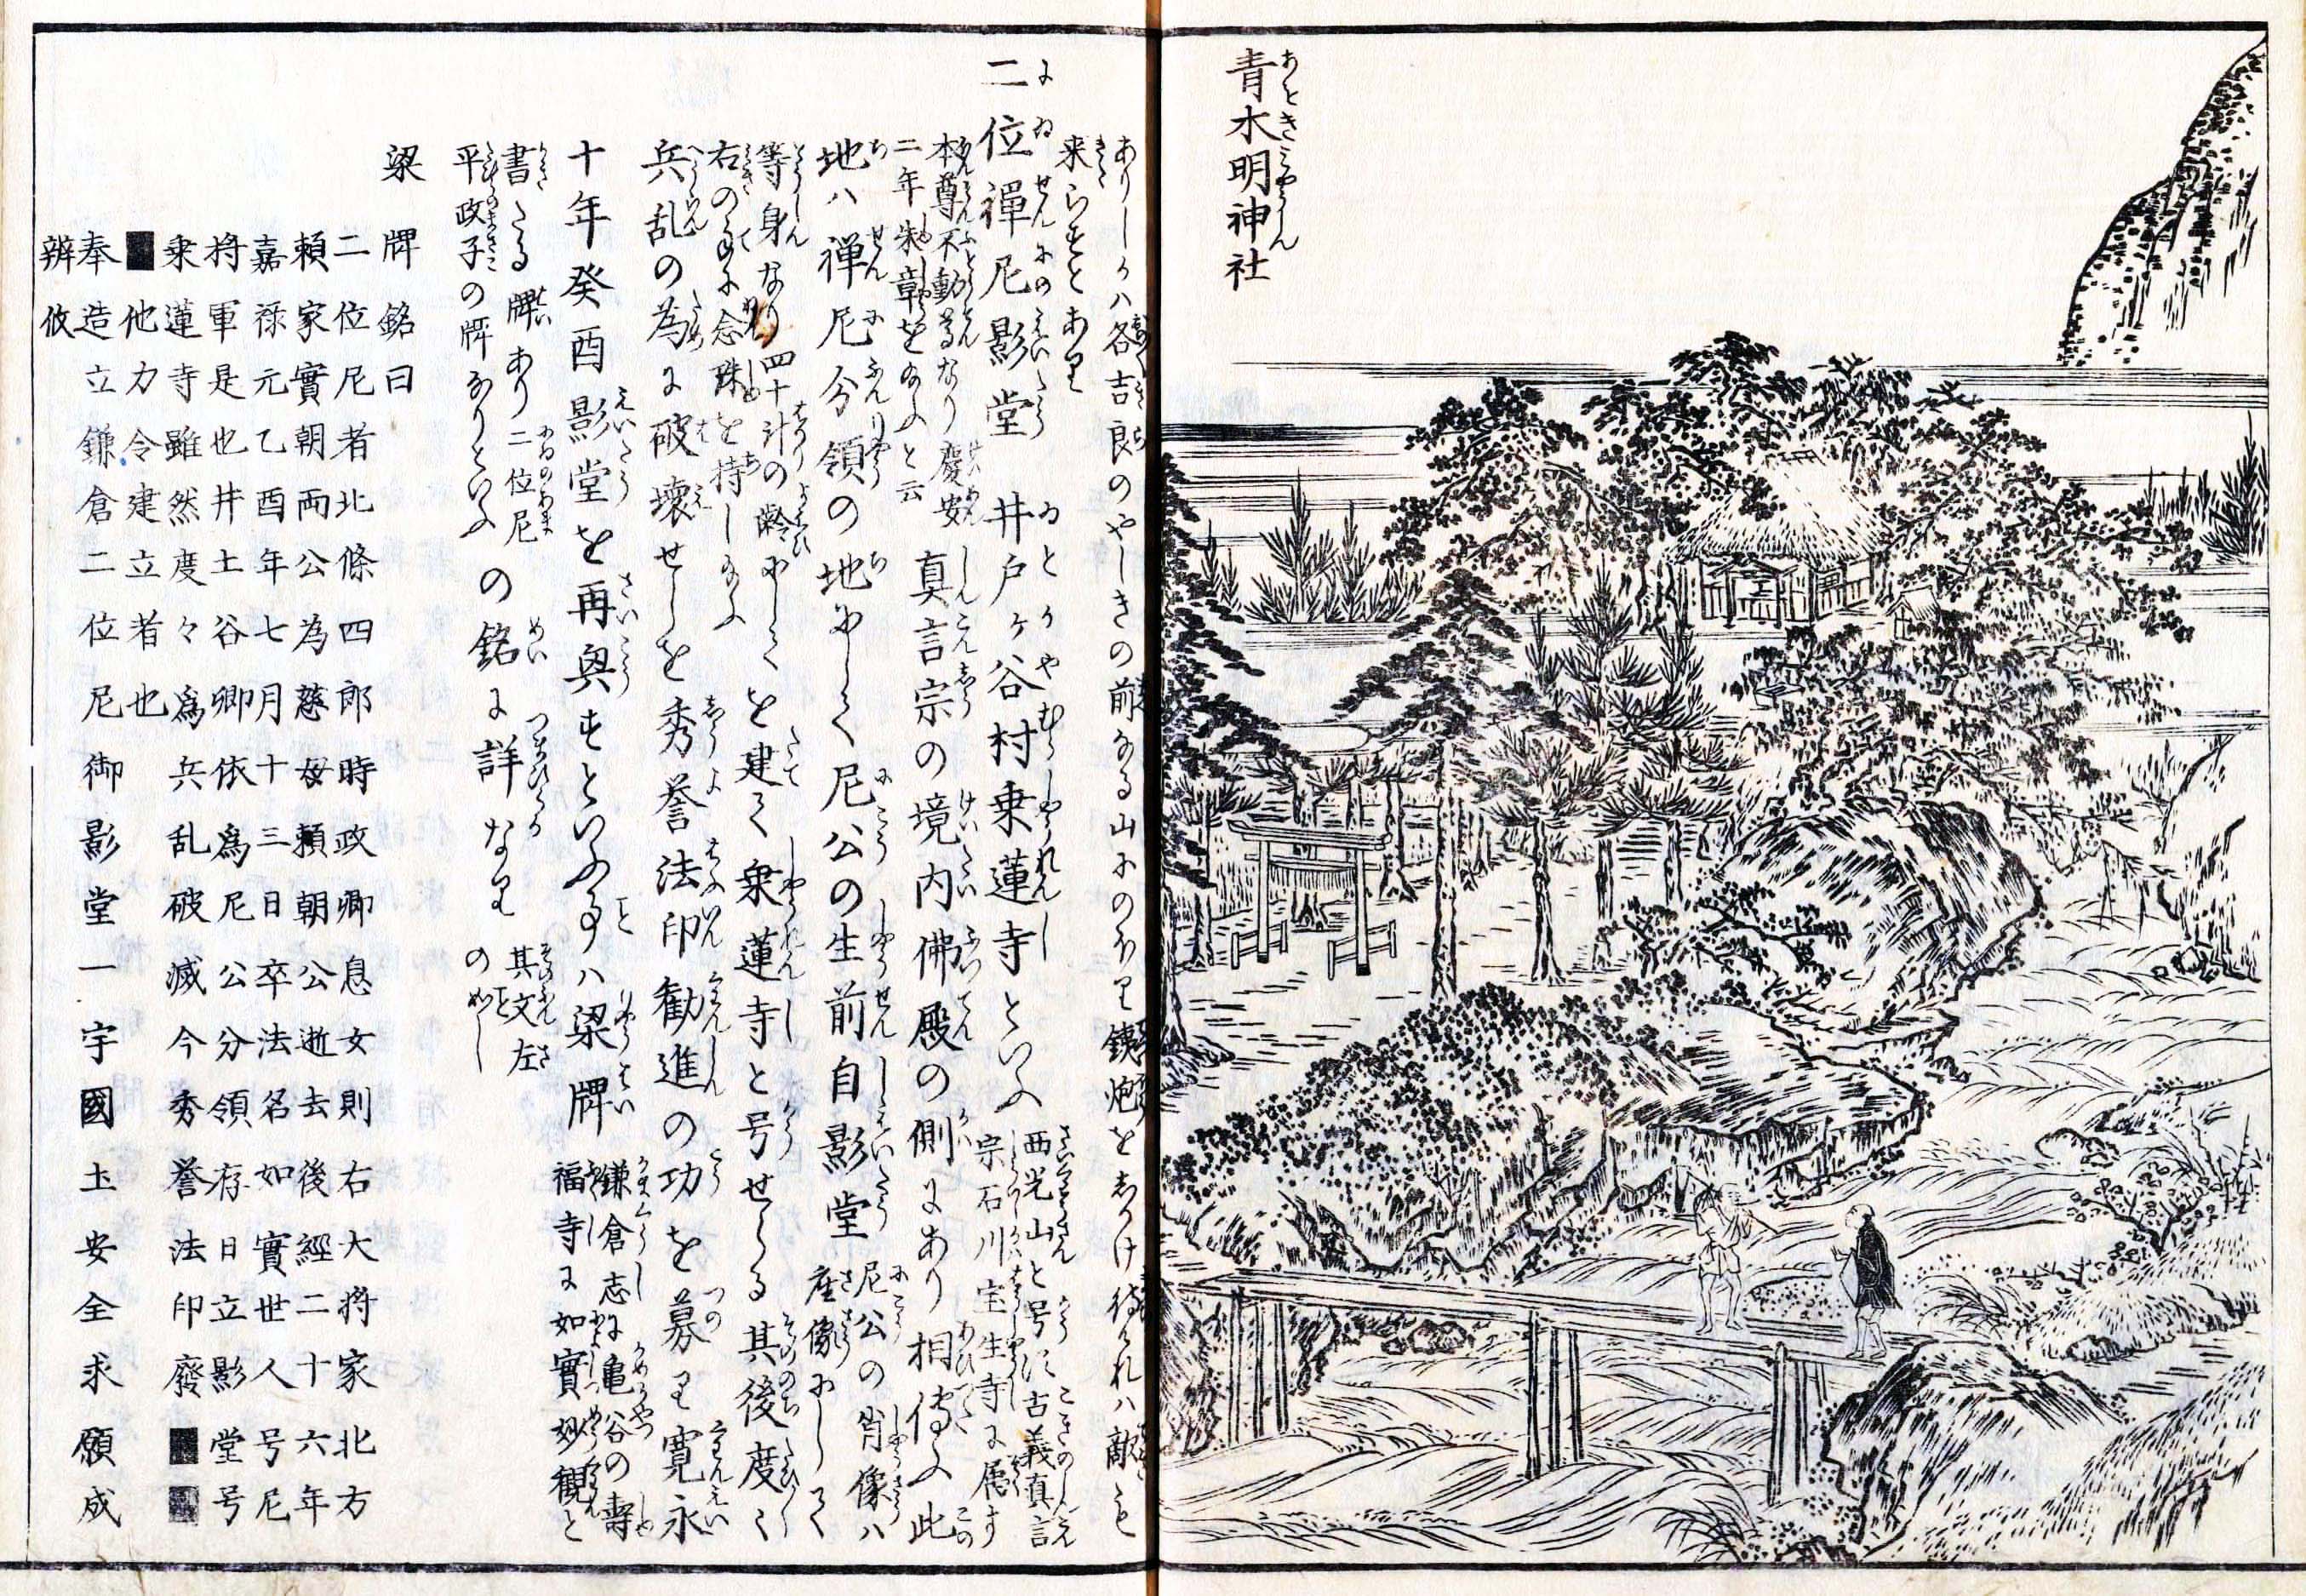 青木明神社
ありしかハ各吉良のやしきの前なる山にのぼり鉄炮をしかけ待けれハ敵も
来らずとあり
二位禪尼影堂 井戸ヶ谷村乗蓮寺といふ 西光山と号ス古義真言
宗石川宝生寺に属す
本尊不動尊なり慶安
二年朱章を給ふと云
真言宗の境内佛殿の側にあり相傳ふ此
地ハ禅尼分領の地にして尼公の生前自影堂 尼公の肖像ハ
座像にして
等身なり四十計の齢にして
右の手に念珠を持し給ふ
を建て乗蓮寺と号せしる其後度〻
兵乱の為に破壊せしを秀誉法印勧進の功を募り寛永
十年癸酉影堂を再興すといふ事ハ梁牌 鎌倉志に亀谷の壽
福寺に如實妙観と
書たる牌あり二位尼
平政子の牌なりといふ
の銘に詳なり 其文左
の如し
梁牌銘曰
二位尼者北條四郎時政卿息女則右大将家北方
頼家實朝両公為慈母頼朝公逝去後經二十六年
嘉禄元乙酉年七月十三日卒法名如實世人号尼
将軍是也井土谷卿依爲尼公分領存日立影堂号
乗蓮寺雖然度々爲兵乱破滅今秀誉法印廢■■
■他力令建立者也
奉造立鎌倉二位尼御影堂一宇國土安全求願成
辨攸